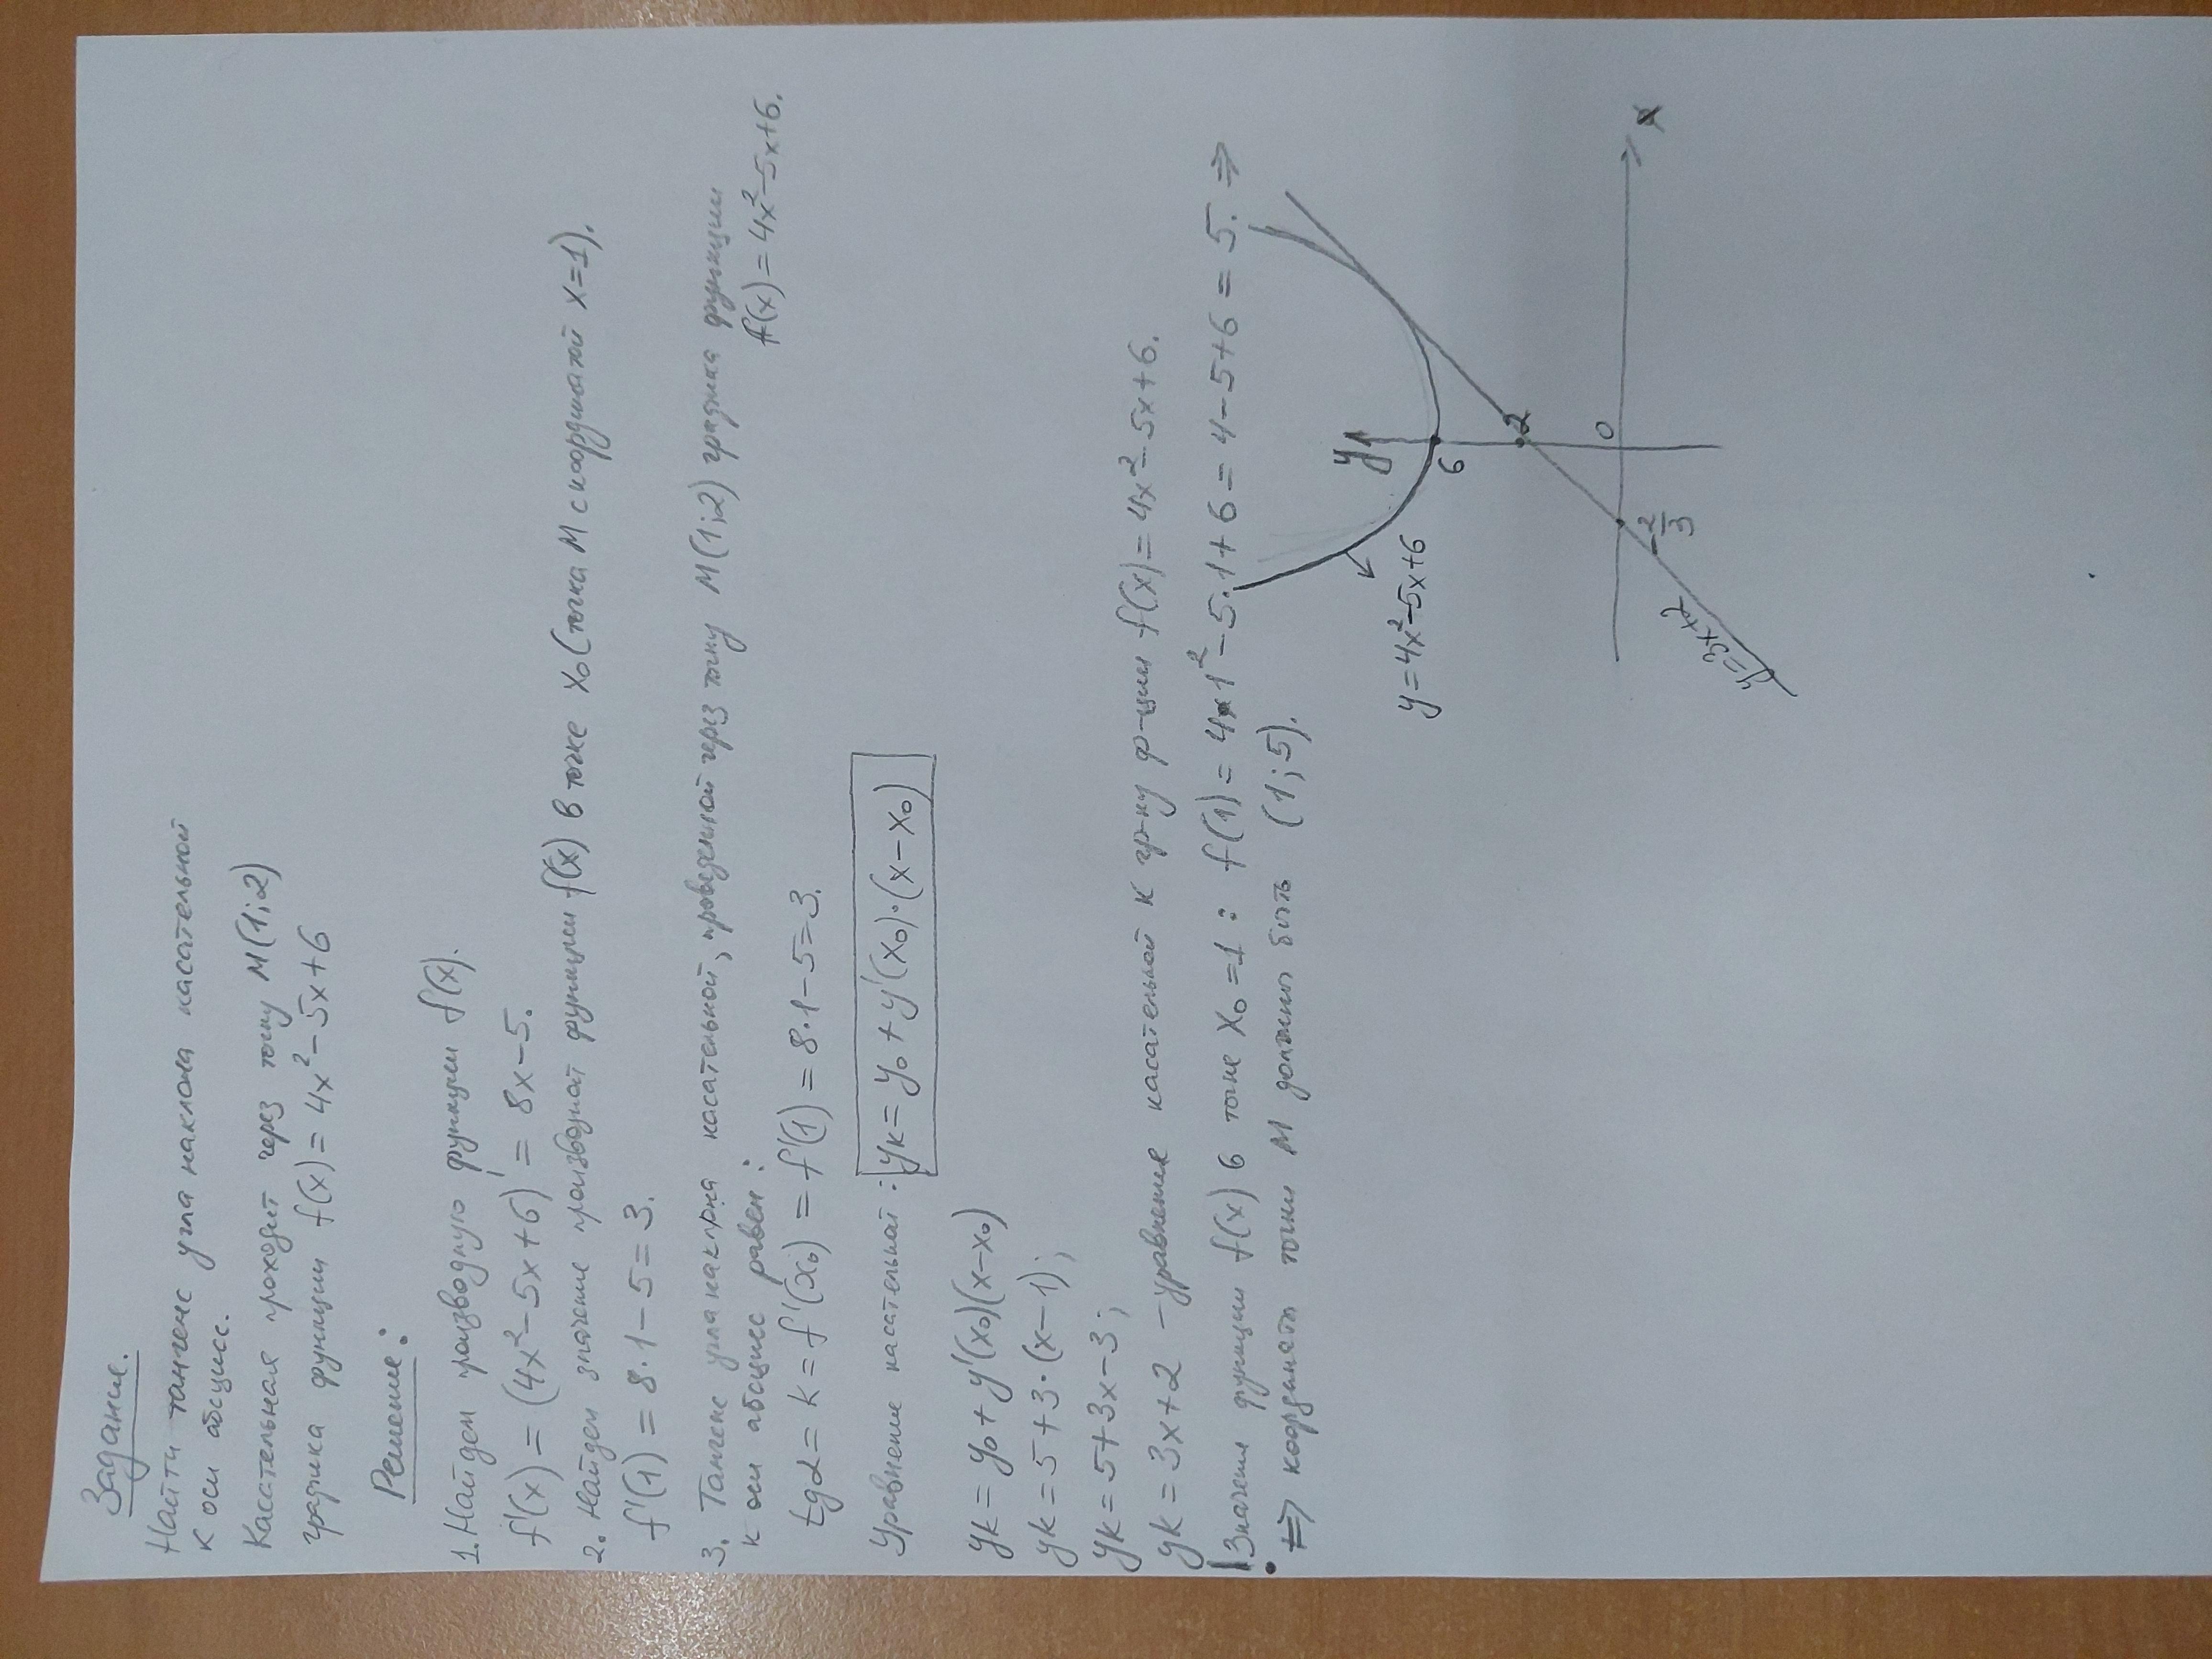 Задание.
Найти тангенс угла наклона касательной
к оси абсцисс.
Касательная проходит через точку M(1;2)
графика функции f(x) = 4x² - 5x + 6
Решение:
1. Найдем производную функции f(x).
f'(x) = (4x² - 5x + 6)' = 8x - 5.
2. Найдем значение производной функции f(x) в точке x₀ (точка M с координатой x=1).
f'(1) = 8·1 - 5 = 3.
3. Тангенс угла наклона касательной, проведенной через точку M(1;2) графика функции
f(x) = 4x² - 5x + 6.
к оси абсцисс равен:
tgα = k = f'(x₀) = f'(1) = 8·1 - 5 = 3.
Уравнение касательной: yk = y₀ + y'(x₀)·(x - x₀)
yk = y₀ + y'(x₀)(x - x₀)
yk = 5 + 3·(x - 1);
yk = 5 + 3x - 3;
yk = 3x + 2 - уравнение касательной к гр-ку ф-ции f(x) = 4x² - 5x + 6.
Значение функции f(x) в точке x₀ = 1: f(1) = 4·1² - 5·1 + 6 = 4 - 5 + 6 = 5. ⇒
⇒ координаты точки M должны быть (1;5).
y
6
y = 4x² - 5x + 6
2
0
x
-2/3
y = 3x + 2